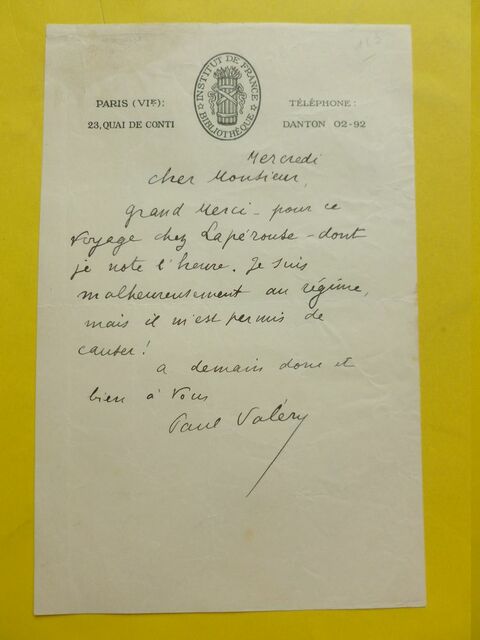 PARIS (VIE):
23, QUAI DE CONTI
INSTITUT DE FRANCE
BIBLIOTHÈQUE
TÉLÉPHONE :
DANTON 02-92
Mercredi
cher Monsieur,
grand merci - pour ce
voyage chez Lapérouse - dont
je note l'heure. Je suis
malheureusement au régime,
mais il m'est permis de
causer !
à demain donc et
bien à vous
Paul Valéry